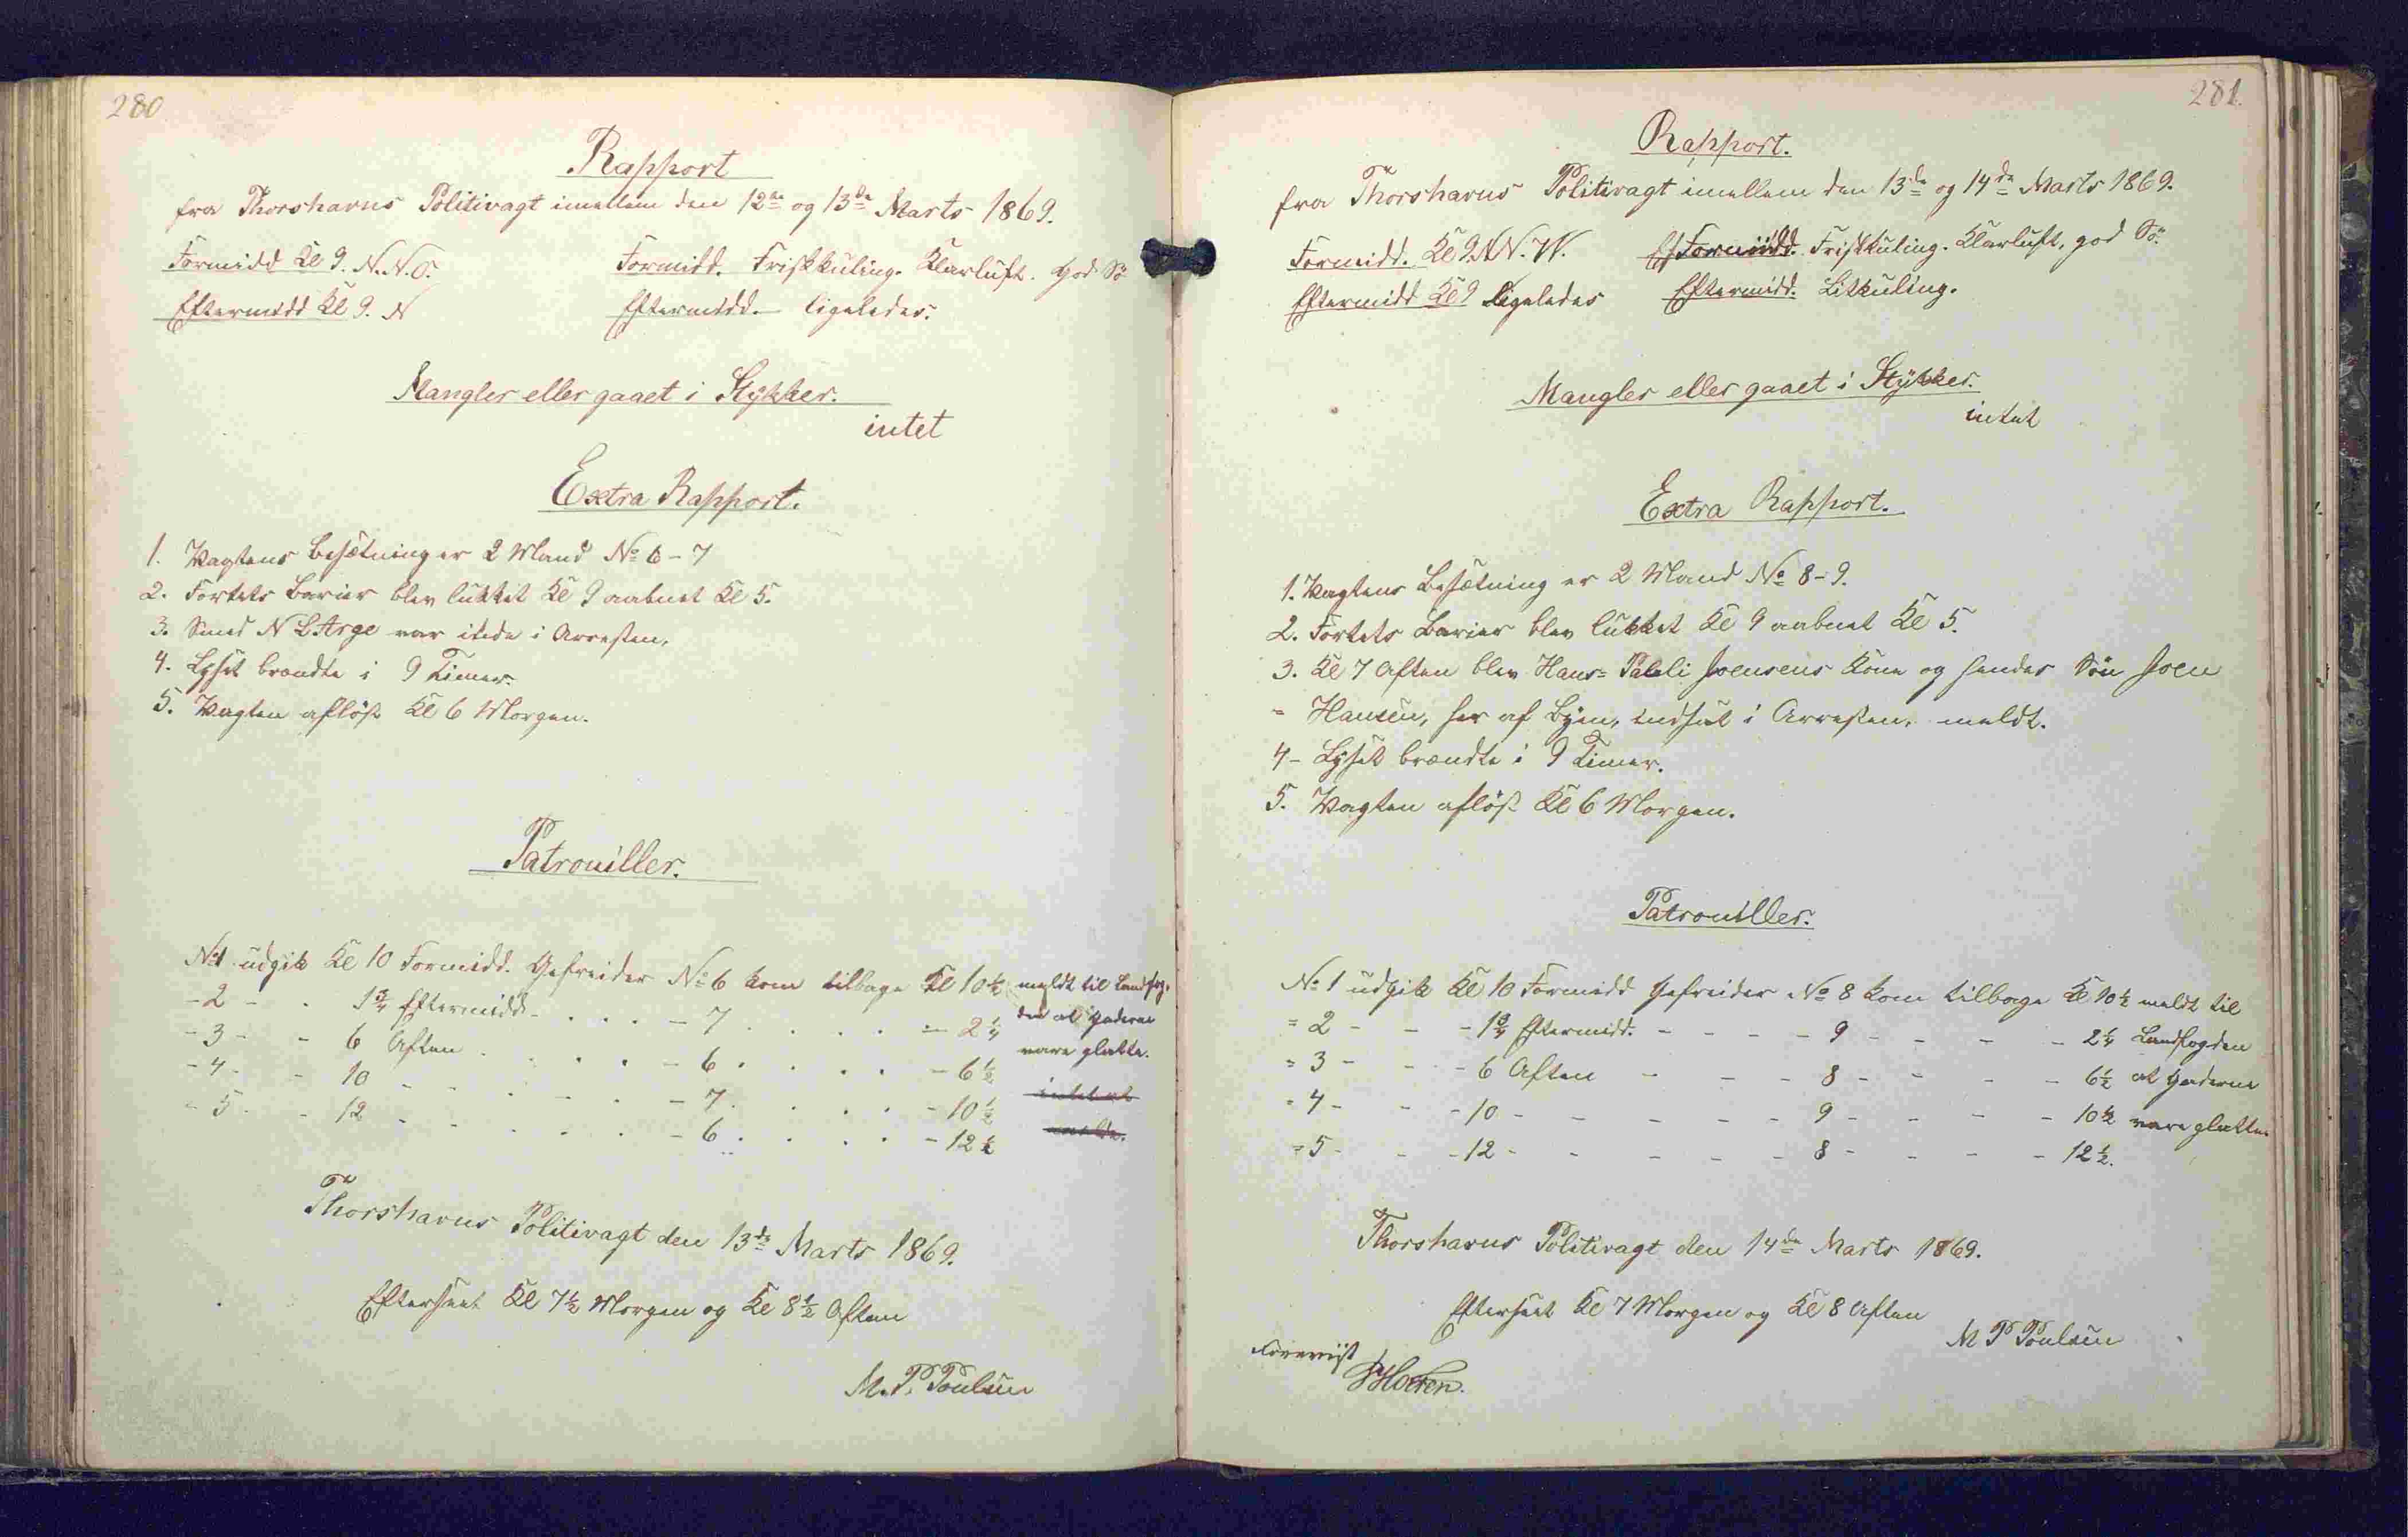 280
Rapport
fra Thorshavns Politivagt imellem den 12te og 13de Marts 1869.
Formidd Kl 9. N.N.O. Formidd. Friskkuling. Klarluft. god Sö
Eftermidd Kl 9. N Eftermidd. ligeledes.
Mangler eller gaaet i Stykker.
intet
Extra Rapport.
1. Vagtens Besætning er 2 Mand No 6-7
2. Fortets Barier blev lukket Kl 9 aabnet Kl 5.
3. Smed N L Arge var inde i Arresten.
4. Lyset brændte i 9 Timer.
5. Vagten aflöst Kl 6 Morgen.
Patrouiller.
No 1 udgik Kl 10 Formidd. Gefreider No 6 kom tilbage Kl 10½ meldt til Landfog-
- 2 - . 1¾ Eftermidd. . . . - 7 . . . . - 2¼ den at Gaderne
- 3 - - 6 Aften . . . . - 6 . . . . - 6½ vare glatte.
- 4 - - 10 - - - - - 7 . . . . - 10½
- 5 - - 12 - - . . . - 6 . . . . - 12½
Thorshavns Politivagt den 13de Marts 1869.
Efterseet Kl 7½ Morgen og Kl 8½ Aften
M. P. Poulsen
281.
Rapport.
fra Thorshavns Politivagt imellem den 13de og 14de Marts 1869.
Formidd. Kl 9. N.N.W. Formidd. Friskkuling. Klarluft, god Sö.
Eftermidd Kl 9 ligeledes Eftermidd. Litkuling.
Mangler eller gaaet i Stykker.
intet
Extra Rapport.
1. Vagtens Besætning er 2 Mand No 8-9.
2. Fortets Barier blev lukket Kl 9 aabnet Kl 5.
3. Kl 7 Aften blev Hans= Paleli Joensens Kone og hendes Sön Joen
= Hansen, her af Byen, indsat i Arresten, meldt.
4- Lyset brændte i 9 Timer.
5. Vagten aflöst Kl 6 Morgen.
Patrouiller.
No 1 udgik Kl 10 Formidd Gefreider No 8 kom tilbage Kl 10½ meldt til
= 2 - - - 1¾ Eftermidd. - - - - 9 - - - - 2¼ Landfogden
= 3 - - - 6 Aften - - - 8 - - - - 6½ at Gaderne
= 4 - - - 10 - - - - - - 9 - - - - 10½ vare glatte
= 5 - - - 12 - - - - - - 8 - - - - 12½.
Thorshavns Politivagt den 14de Marts 1869.
Efterseet Kl 7 Morgen og Kl 8 Aften
M P Poulsen
Foreviist